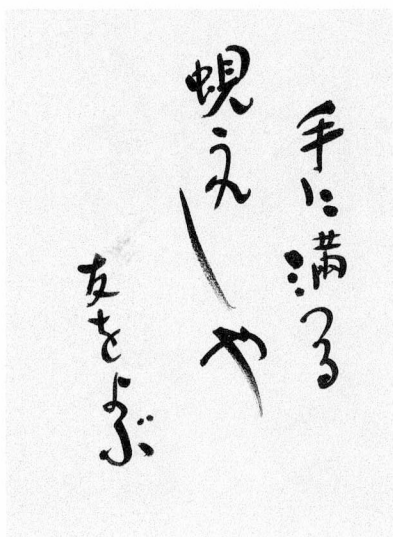 手に満つる
蜆うれしや
友をよぶ